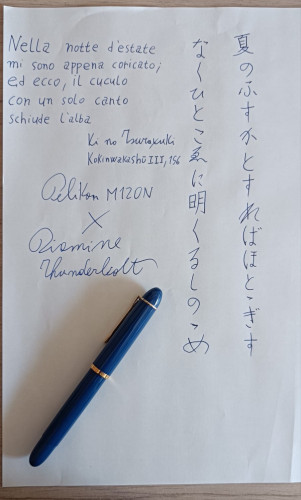 Nella notte d'estate
mi sono appena coricato;
ed ecco, il cuculo
con un solo canto
schiude l'alba
Ki no Tsurayuki
Kokinwakashū III, 156
Pelikan M120N
×
Diamine
Thunderbolt
夏のふすかとすればほとゝぎす
なくひとこゑに明くるしのゝめ